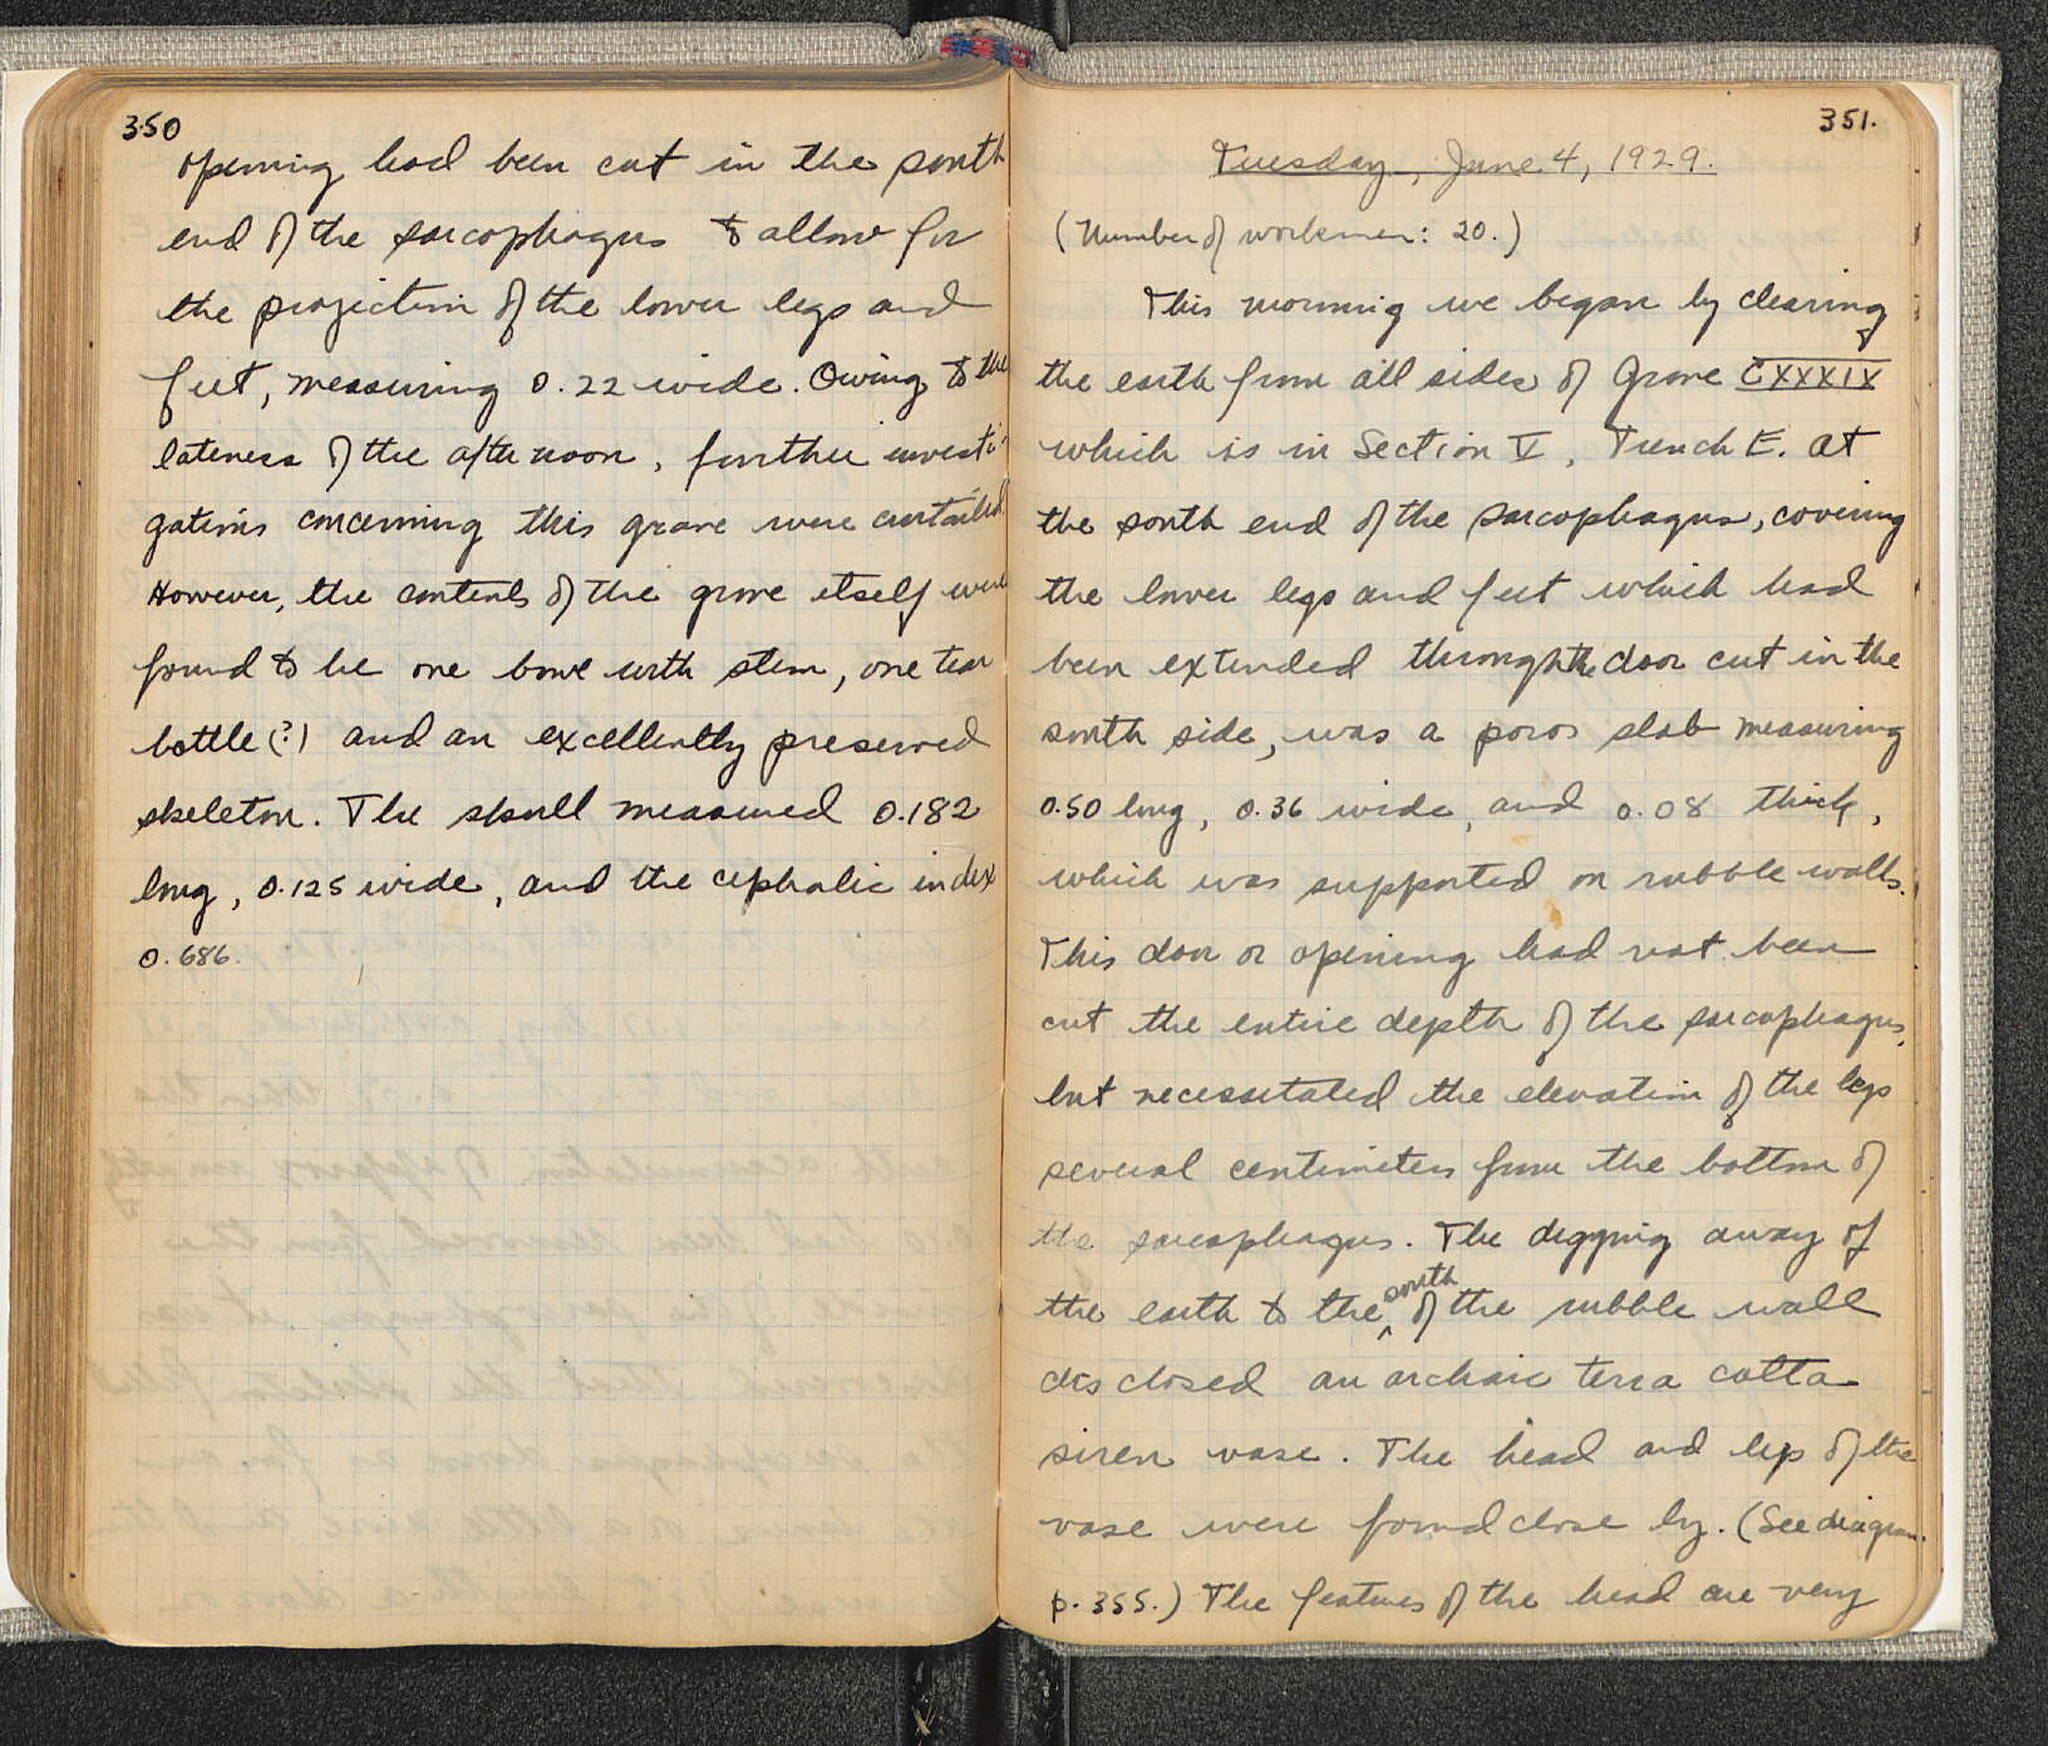 350
opening had been cut in the south
end of the sarcophagus to allow for
the projection of the lower legs and
feet, measuring 0.22 wide. Owing to the
lateness of the afternoon, further investi-
gations concerning this grave were curtailed.
However, the contents of the grave itself were
found to be one bowl with stem, one tear
bottle (?) and an excellently preserved
skeleton. The skull measured 0.182
long, 0.125 wide, and the cephalic index
0.686.
351.
Tuesday, June 4, 1929.
(Number of workmen: 20.)
This morning we began by clearing
the earth from all sides of Grave CXXXIX
which is in Section V, Trench E. At
the south end of the sarcophagus, covering
the lower legs and feet which had
been extended through the door cut in the
south side, was a poros slab measuring
0.50 long, 0.36 wide, and 0.08 thick,
which was supported on rubble walls.
This door or opening had not been
cut the entire depth of the sarcophagus,
but necessitated the elevation of the legs
several centimeters from the bottom of
the sarcophagus. The digging away of
the earth to the south of the rubble wall
disclosed an archaic terra cotta
siren vase. The head and lip of the
vase were found close by. (See diagram.
p. 355.) The features of the head are very